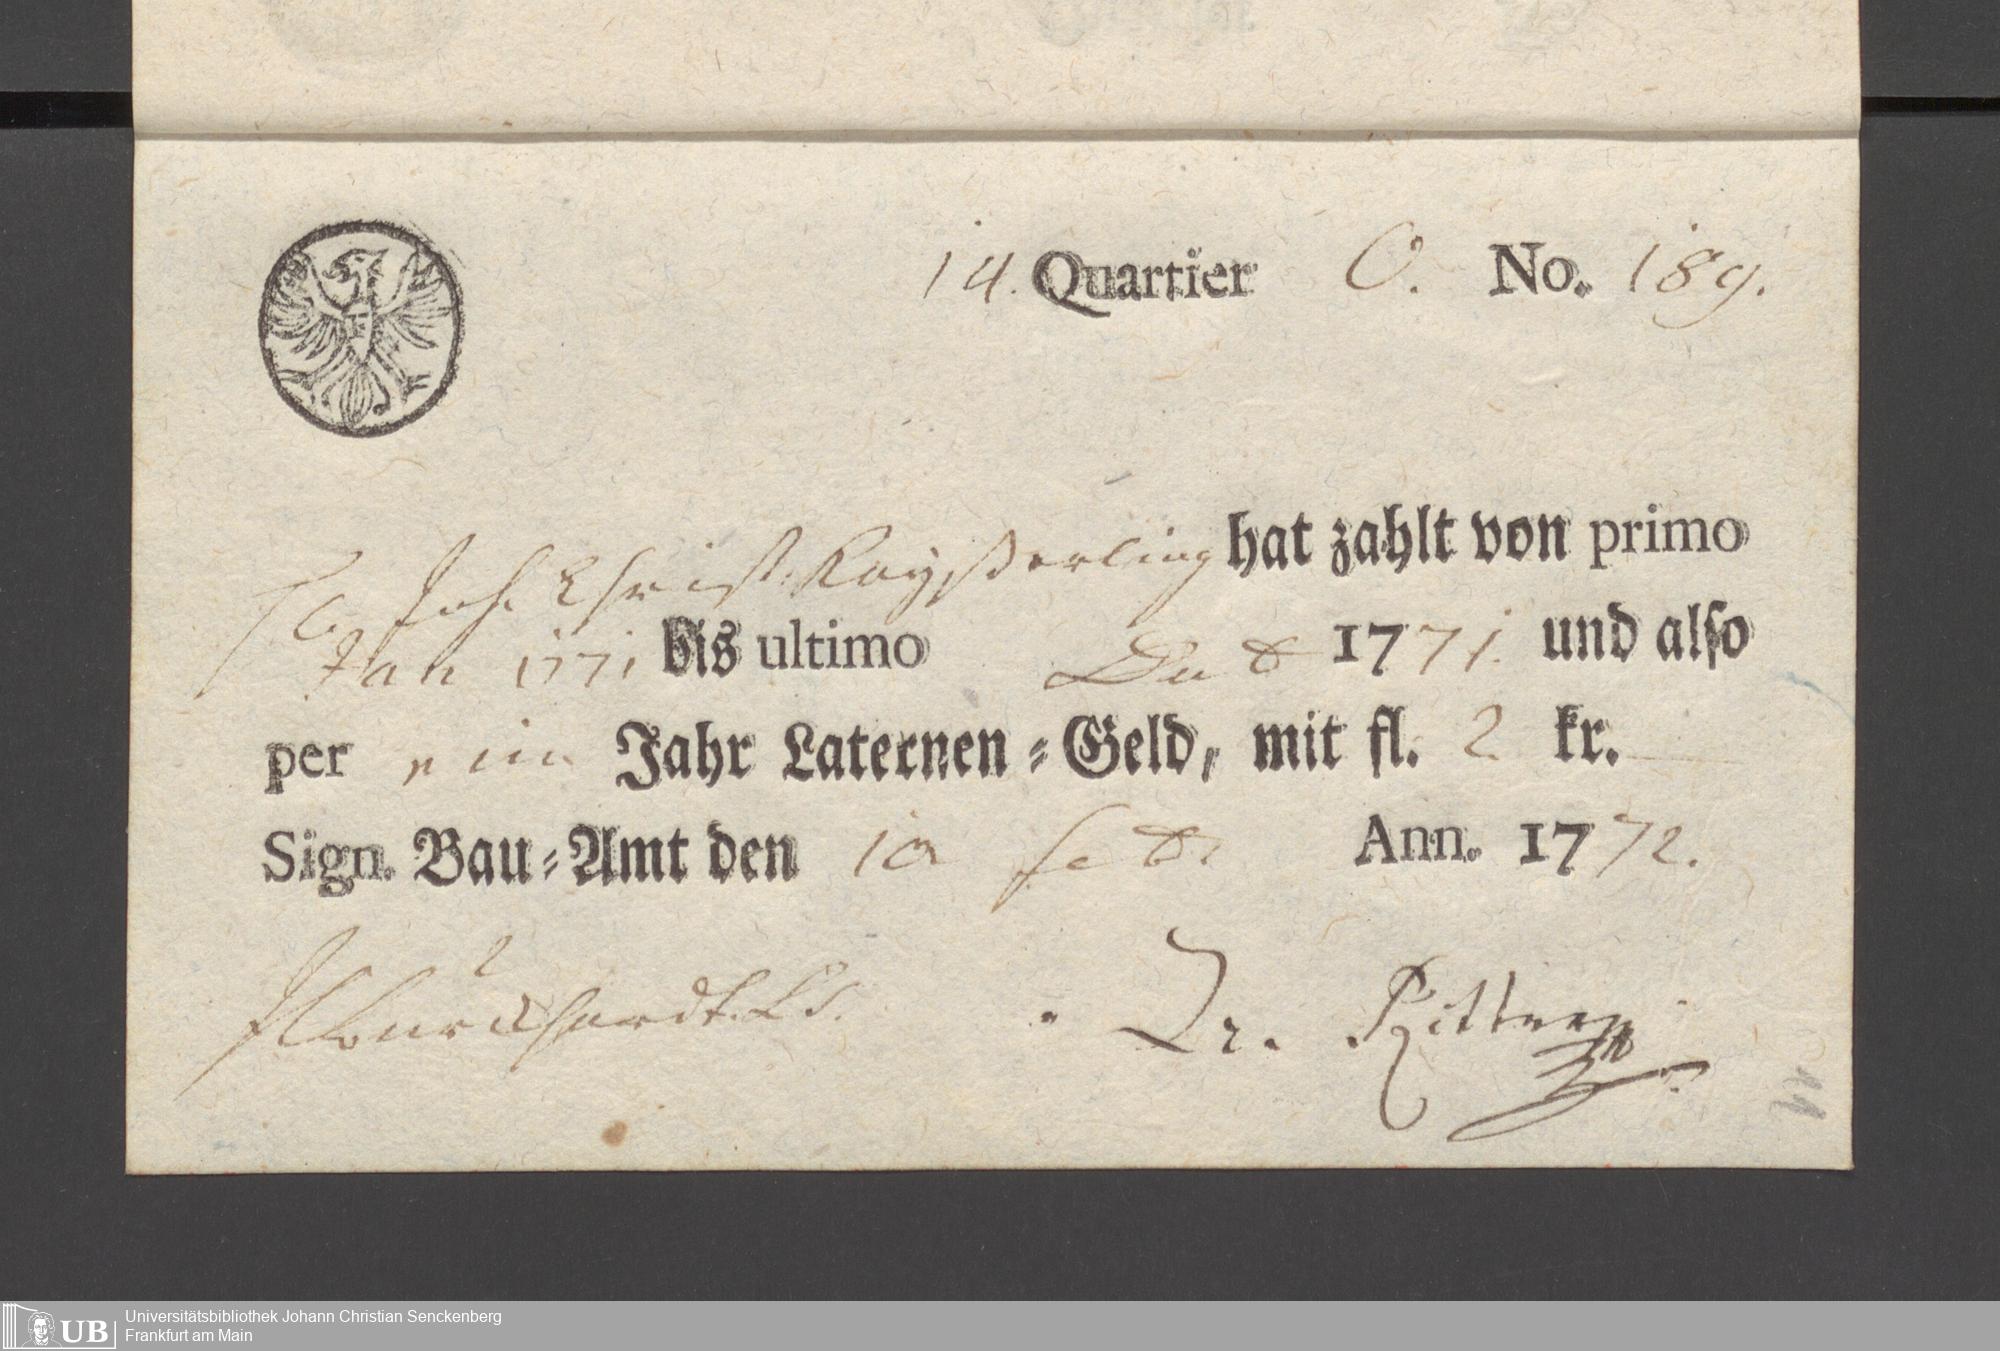 14. Quartier O. No. 189.
H. Joh. Christ. Kayßerling hat zahlt von primo
Jan 1771 bis ultimo Du 1771. und also
per ein Jahr Laternen-Geld, mit fl. 2 kr.
Sign. Bau-Amt den Ann. 1772.
Dr. Ritter
Universitätsbibliothek Johann Christian Senckenberg
Frankfurt am Main
UB